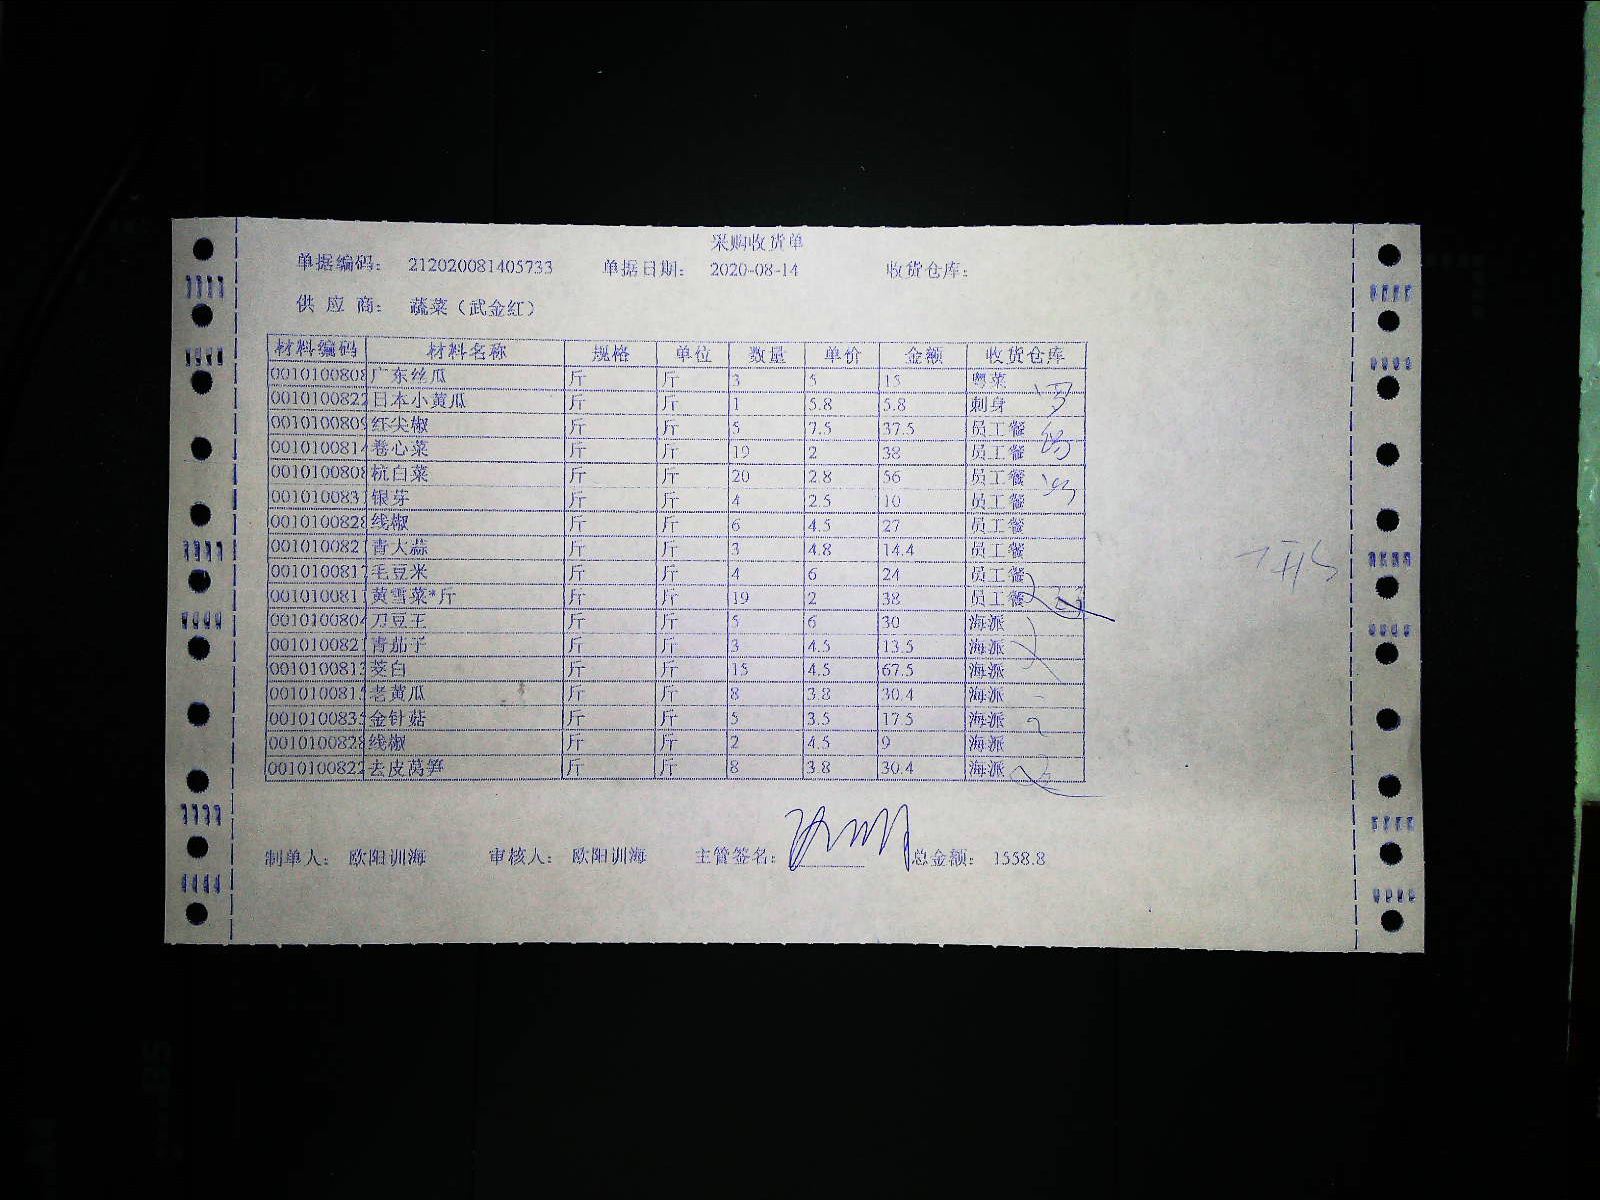 采购收货单
单据编码: 212020081405733 单据日期: 2020-08-14 收货仓库:
供应商: 蔬菜(武金红)
材料编码 材料名称 规格 单位 数量 单价 金额 收货仓库
0010100808 广东丝瓜 斤 斤 3 5 15 粤菜
0010100822 日本小黄瓜 斤 斤 1 5.8 5.8 刺身
0010100809 红尖椒 斤 斤 5 7.5 37.5 员工餐
0010100814 卷心菜 斤 斤 19 2 38 员工餐
0010100808 杭白菜 斤 斤 20 2.8 56 员工餐
001010083 银芽 斤 斤 4 2.5 10 员工餐
0010100828 线椒 斤 斤 6 4.5 27 员工餐
001010082 青大蒜 斤 斤 3 4.8 14.4 员工餐
001010081 毛豆米 斤 斤 4 6 24 员工餐
001010081 黄雪菜*斤 斤 斤 19 2 38 员工餐
0010100804 刀豆王 斤 斤 5 6 30 海派
001010082 青茄子 斤 斤 3 4.5 13.5 海派
001010081 茭白 斤 斤 15 4.5 67.5 海派
001010081 老黄瓜 斤 斤 8 3.8 30.4 海派
001010083 金针菇 斤 斤 5 3.5 17.5 海派
0010100828 线椒 斤 斤 2 4.5 9 海派
0010100822 去皮莴笋 斤 斤 8 3.8 30.4 海派
制单人: 欧阳训海 审核人: 欧阳训海 主管签名: 总金额: 1558.8